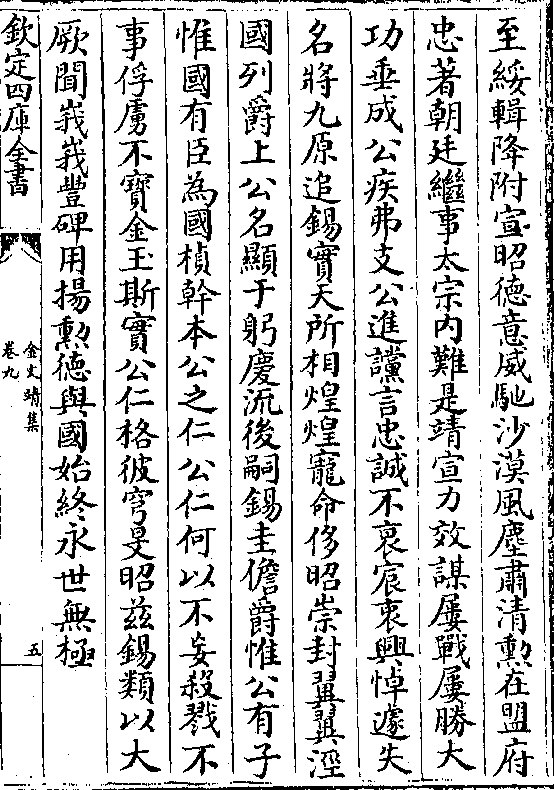 至綏輯降附宣昭德意威馳沙漠風塵肅清勲在盟府
忠著朝廷繼事太宗内難是靖宣力效謀屢戰屢勝大
功垂成公疾弗支公進讜言忠誠不衰宸衷興悼遽失
名將九原追錫實天所相煌煌寵命侈昭崇封翼翼涇
國列爵上公名顯于躬慶流後嗣錫圭儋爵惟公有子
惟國有臣為國楨幹本公之仁公仁何以不妄殺戮不
事俘虜不寳金玉斯實公仁格彼穹旻昭兹錫類以大
厥聞峩峩豐碑用揚勲德與國始終永世無極
欽定四庫全書
金文靖集
卷九
五